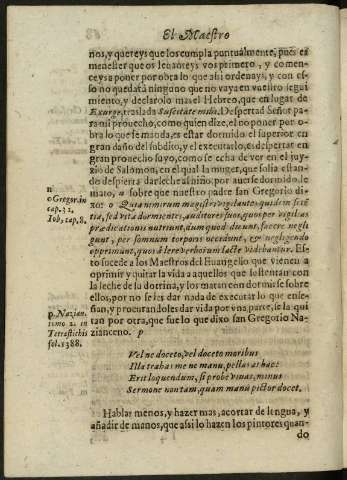 El Maestro
nos, y quereys que los cumpla puntualmente, pues es
menester que os leuanteys vos primero, y comen-
ceys a poner por obra lo que assi ordenays, y con es-
so no quedarà ninguno que no vaya en vuestro segui
miento, y declarolo mas el Hebreo, que en lugar de
Exurge, traslada Suscitate mihi. Despertad Señor pa
ra mi prouecho, como quien dize, el no poner por o-
bra lo que se manda, es estar dormido el superior en
gran daño del subdito, y el executarlo, es despertar en
gran prouecho suyo, como se echa de ver en el juy-
zio de Salomon, en el qual la muger, que solia estan-
do despierta dar leche al niño, por auerse dormido, le
mato, a sobre que nuestro padre san Gregorio di-
xo: o Quia nimirum magistri vigilantes quidem sciē
tia, sed vita dormientes, auditores suos, quos per vigilias
prædicationis nutriunt, dum quod dicunt, facere negli
gunt, per somnum torporis occidunt, & negligendo
opprimunt, quos alere verborum lacte videbantur. Es-
to sucede a los Maestros del Euangelio que vienen a
oprimir y quitar la vida a aquellos que sustentan con
la leche de su dotrina, y los matan con dormirse sobre
ellos, por no se les dar nada de executar lo que ense-
ñan, y procurandoles dar vida por vna parte, se la qui
tan por otra, que fue lo que dixo san Gregorio Na-
zianceno. p
n
o Gregor. in
cap. 32.
Iob, cap. 8.
p. Nazian.
tomo 2. in
Tetrastichis
fol. 1388.
Vel ne doceto, vel doceto moribus
Erit loquendum, si probè viuas, minus
Sermone non tam, quam manu pictor docet.
Hablar menos, y hazer mas, acortar de lengua, y
añadir de manos, que assi lo hazen los pintores quan-
do